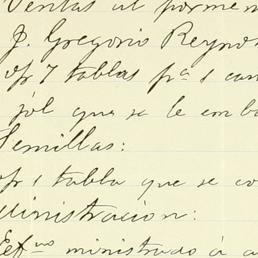 Ventas al pormen
J. Gregorio Reyno
pr 7 tablas pa 1 can
jol que se le emb
Semillas:
pr 1 tabla que se co
ministracion:
Eefvo ministrado á